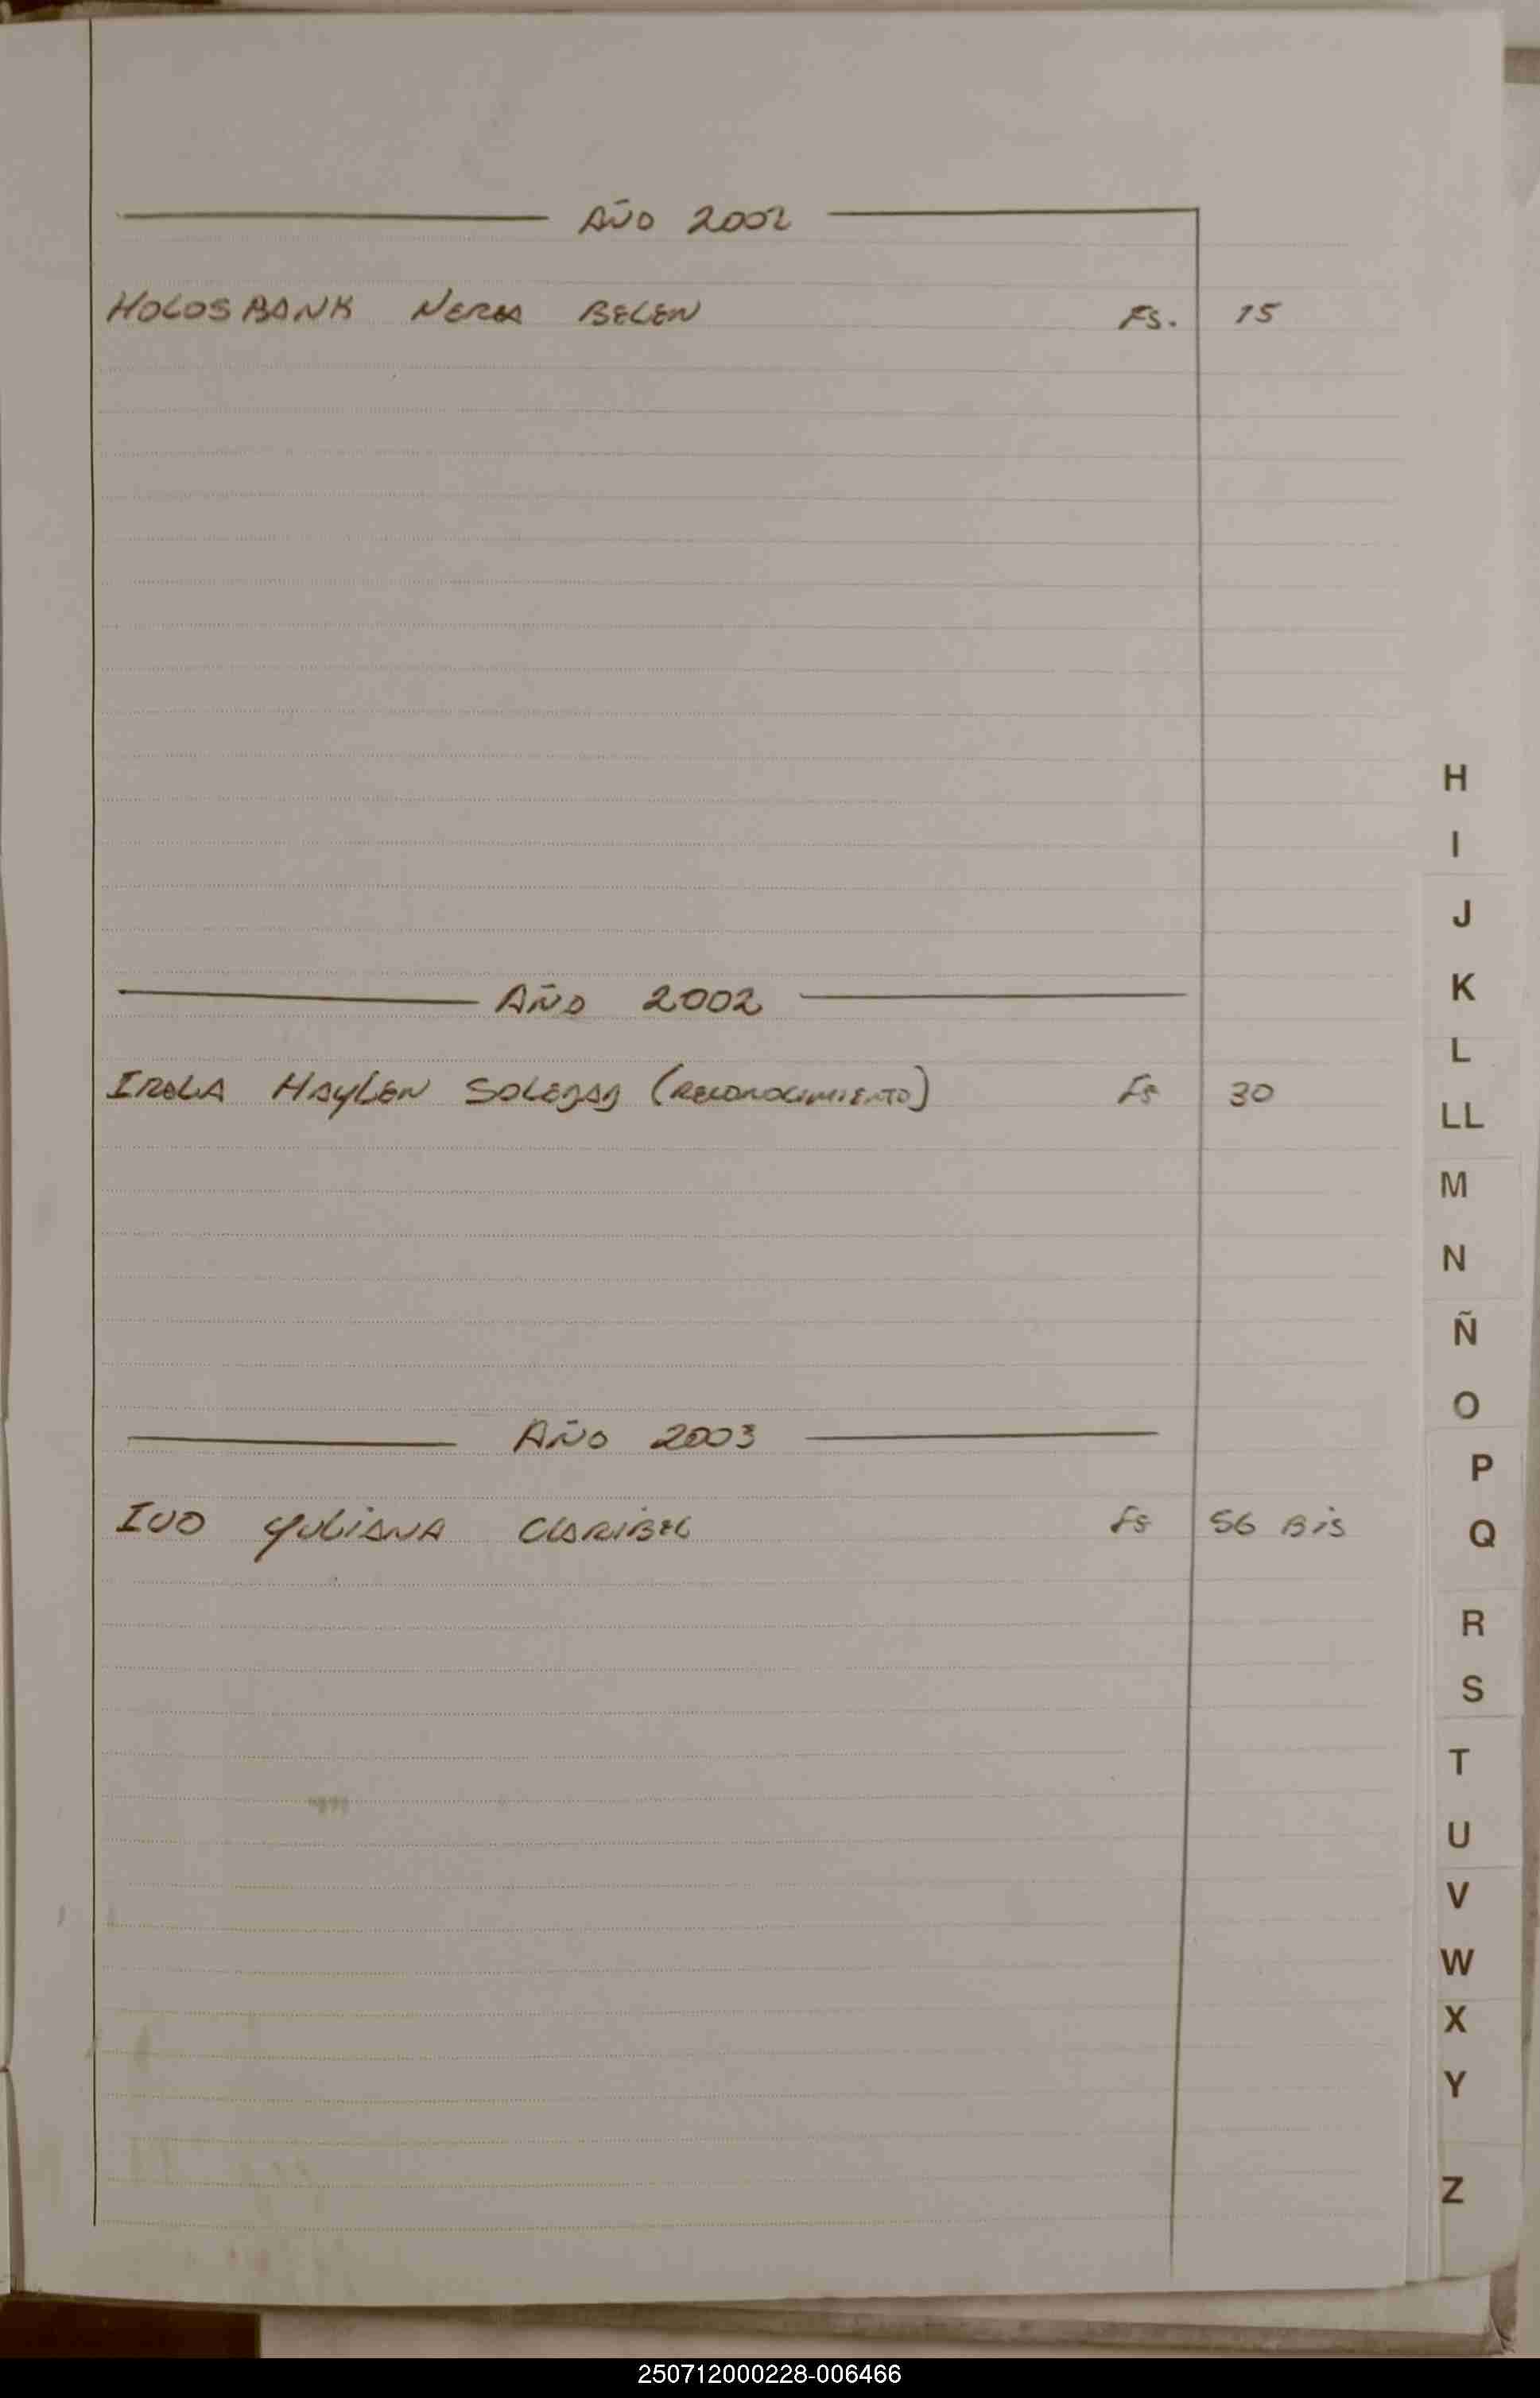 AÑO 2002
HOLOSBANK NEREA BELEN Fs. 15
AÑO 2002
IRALA HAYLEN SOLEDAD (RECONOCIMIENTO) Fs 30
AÑO 2003
IVO YULIANA CLARIBEL Fs 56 Bis
H
I
J
K
L
LL
M
N
Ñ
O
P
Q
R
S
T
U
V
W
X
Y
Z
250712000228-006466